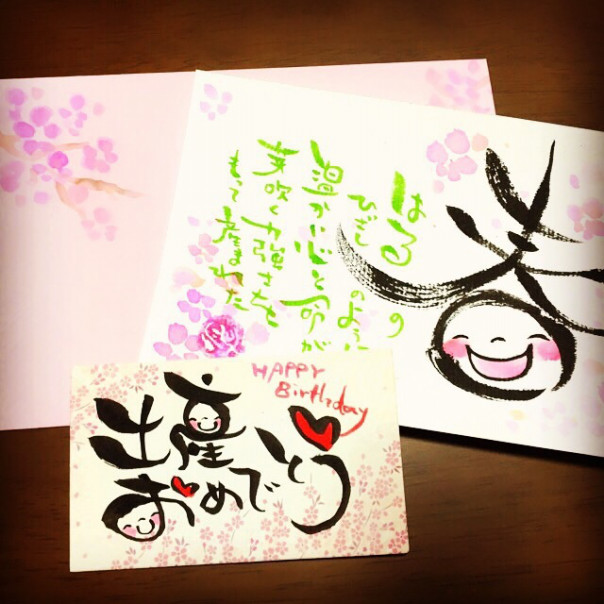 春
はるの
ひざしのように
温かい心と命が
芽吹く力強さを
もって産まれた
HAPPY
Birthday
出産
おめでとう